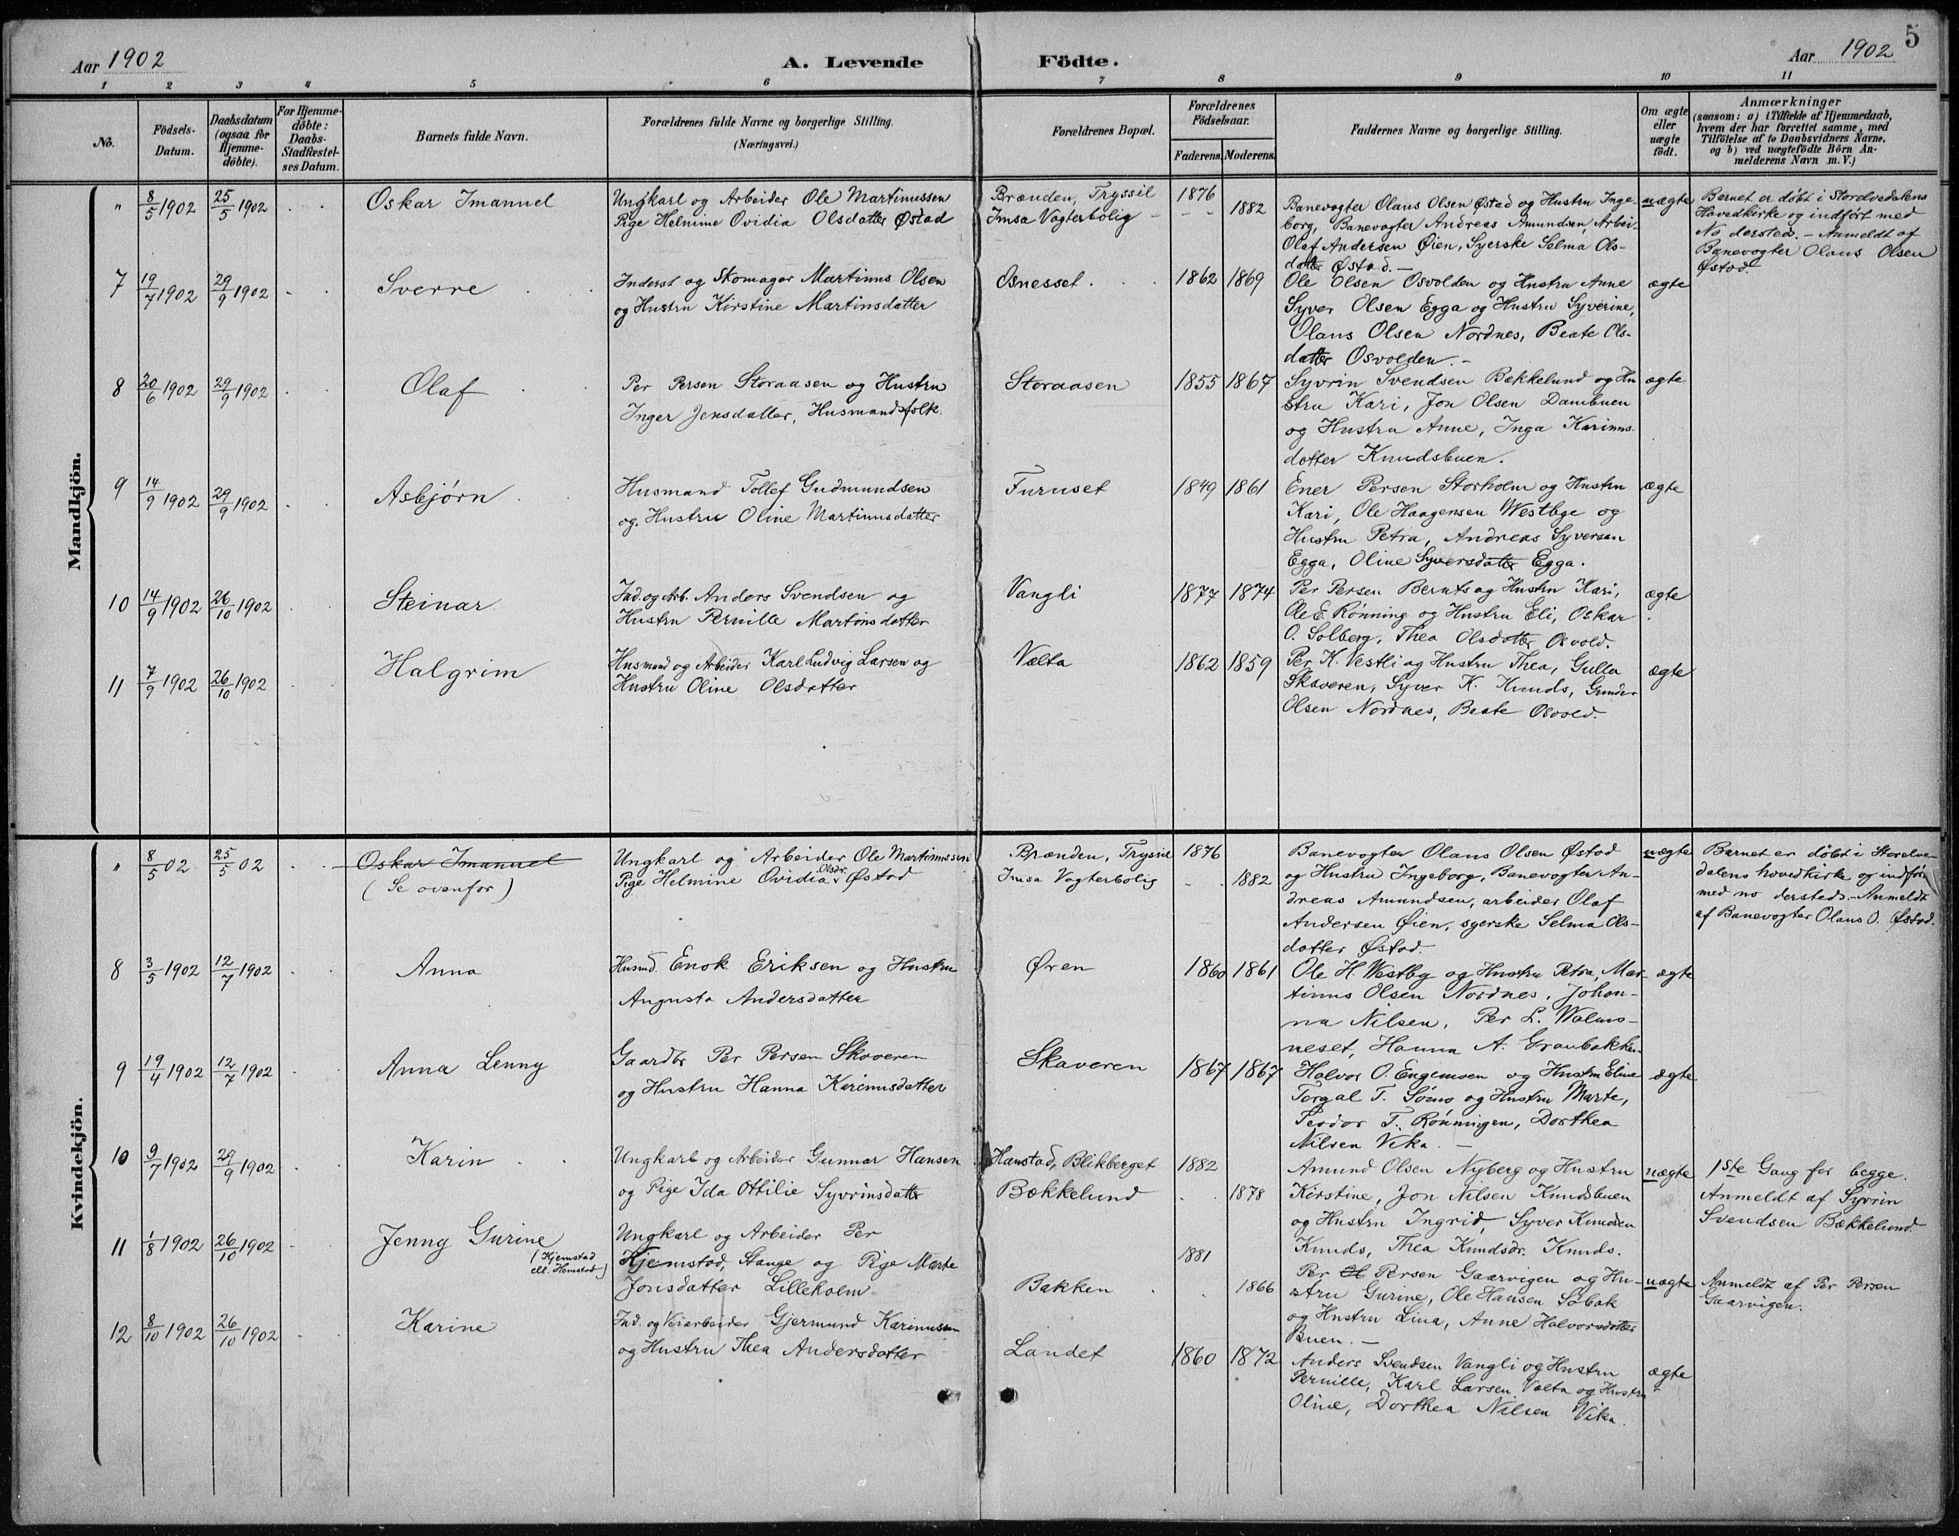 5
Aar 1902
A. Levende
Födte.
Aar 1902
1 2 3 4 5 6 7 8 9 10 11
No.
Födsels-
Datum.
Daabsdatum
(ogsaa for
Hjemme-
döbte).
For Hjemme-
döbte:
Daabs-
Stadfæstel-
ses Datum.
Barnets fulde Navn.
Forældrenes fulde Navne og borgerlige Stilling.
(Næringsvei.)
Forældrenes Bopæl.
Forældrenes
Födselsaar.
Faderens. Moderens.
Faddernes Navne og borgerlige Stilling.
Om ægte
eller
uægte
födt.
Anmærkninger
(saasom: a) i Tilfælde af Hjemmedaab,
hvem der har forrettet samme, med
Tilföielse af to Daabsvidners Navne,
og b) ved uægtefödte Börn An-
melderens Navn m. V.)
Mandkjön.
" 8/5 1902 25/5 1902 Oskar Imanuel
Ungkarl og Arbeider Ole Martinussen
Pige Helmine Ovidia Olsdatter Østad
Brænden, Tryssil 1876
Imsa Vogterbolig 1882
Banevogter Olaus Olsen Østad og Hustru Inge-
borg, Banevogter Andreas Amundsen, Arbei-
Olaf Andersen Øien, Syerske Selma Ols-
datter Østad.-
uægte
Barnet er døbt i Storelvedalens
Hovedkirke og indført med
No dersteds. - Anmeldt af
Banevogter Olaus Olsen
Østad.
7 19/7 1902 29/9 1902 Sverre
Inderst og Skomager Martinus Olsen
og Hustru Kirstine Martinsdatter
Osnesset. 1862 1869
Ole Olsen Osvolden og Hustru Anne
Syver Olsen Egga og Hustru Syverine,
Olaus Olsen Nordnes, Beate Ols-
datter Osvolden. -
ægte
8 20/6 1902 29/9 1902 Olaf
Per Persen Storaasen og Hustru
Inger Jensdatter, Husmandsfolk.
Storaasen 1855 1867
Syvrin Svendsen Bækkelund og Hu
stru Kari, Jon Olsen Dambuen
og Hustru Anne, Inga Karinus-
datter Knudsbuen.
ægte
9 14/9 1902 29/9 1902 Asbjørn
Husmand Tollef Gudmundsen
og Hustru Oline Martinusdatter
Furuset 1849 1861
Ener Persen Storholm og Hustru
Kari, Ole Haagensen Westbye og
Hustru Petra, Andreas Syversen
Egga, Oline Syversdatter Egga.
ægte
10 14/9 1902 26/10 1902 Steinar
Ind. og Arb. Anders Svendsen og
Hustru Pernille Martinsdatter
Vangli 1877 1874
Per Persen Bernts og Hustru Kari,
Ole E. Rønning og Hustru Eli, Oskar
O. Solberg, Thea Olsdatter Osvold.
ægte
11 7/9 1902 26/10 1902 Halgrim
Husmand og Arbeider Karl Ludvig Larsen og
Hustru Oline Olsdatter
Vælta 1862 1859
Per K. Vestli og Hustru Thea, Gulla
Skaveren, Syver K. Knuds, Gunder
Olsen Nordnes, Beate Osvold.
ægte
Kvindekjön.
" 8/5 02 25/5 02 Oskar Imanuel
(Se ovenfor)
Ungkarl og Arbeider Ole Martinussen
Pige Helmine Ovidia Olsdr. Østad
Brænden, Tryssil 1876
Imsa Vogterbolig 1882
Banevogter Olaus Olsen Østad
og Hustru Ingeborg, Banevogter An-
dreas Amundsen, arbeider Olaf
Andersen Øien, syerske Selma Ols-
datter Østad.
uægte
Barnet er døbt i Storelve-
dalens hovedkirke og indført
med no dersteds. - Anmeldt
af Banevogter Olaus O. Østad.
8 3/5 1902 12/7 1902 Anna
Husmd. Enok Eriksen og Hustru
Augusta Andersdatter
Øren 1860 1861
Ole H. Westby og Hustru Petra, Mar-
tinus Olsen Nordnes, Johan-
na Nilsen, Per L. Wolms-
neset, Hanna A. Graubakken
ægte
9 19/4 1902 12/7 1902 Anna Lenny
Gaardbr Per Persen Skaveren
og Hustru Hanna Karinusdatter
Skaveren 1867 1867
Halvor O. Engemoen og Hustru Eline
Torgal T. Sømo og Hustru Marte,
Teodor T. Rønningen, Dorthea
Nilsen Vika. -
ægte
10 9/7 1902 29/9 1902 Karin
Ungkarl og Arbeider Gunnar Hansen
og Pige Ida Ottilie Syvrinsdatter
Hanstad, Blikberget 1882
Bækkelund 1878
Amund Olsen Nyberg og Hustru
Kirstine, Jon Nilsen Knudsbuen
og Hustru Ingrid, Syver Knudsen
Knuds, Thea Knudsdr. Knuds.
uægte
1ste Gang for begge.
Anmeldt af Syvrin
Svendsen Bækkelund.
11 1/8 1902 26/10 1902 Jenny Gurine
(Kjemstad
ell. Hemstad)
Ungkarl og Arbeider Per
Kjemstad, Stange og Pige Marte
Jonsdatter Lilleholm.
1881
Bakken 1866
Per Persen Gaarvigen og Hu-
stru Gurine, Ole Hansen Søbak
og Hustru Lina, Anne Halvorsdatter
Buen. -
uægte
Anmeldt af Per Persen
Gaarvigen.
12 8/10 1902 26/10 1902 Karine
Ind. og Veiarbeider Gjermund Karinussen
og Hustru Thea Andersdatter
Landet 1860 1872
Anders Svendsen Vangli og Hustru
Pernille, Karl Larsen Vælta og Hustru
Oline, Dorthea Nilsen Vika.
ægte